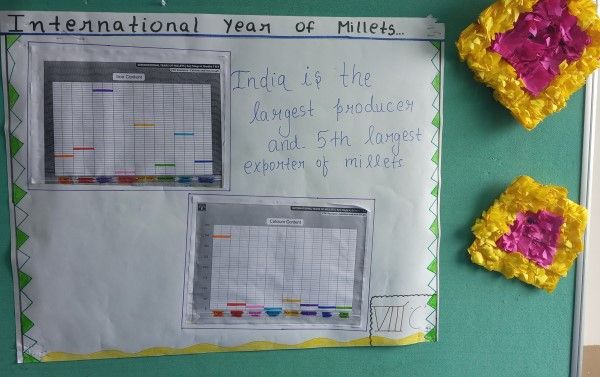 International Year of Millets...
Iron Content
India is the
largest producer
and 5th largest
exporter of millets
Calcium Content
VIII C